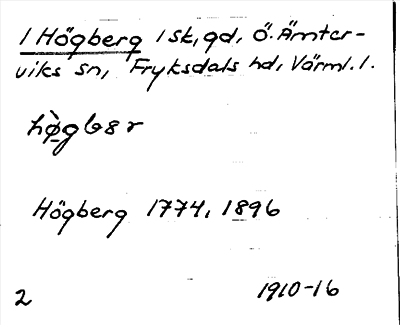 1 Högberg 1 sk, gd, Ö. Ämter-
viks sn, Fryksdals hd, Värml. l.
hø̀gbɜr
Högberg 1774, 1896
2 1910-16